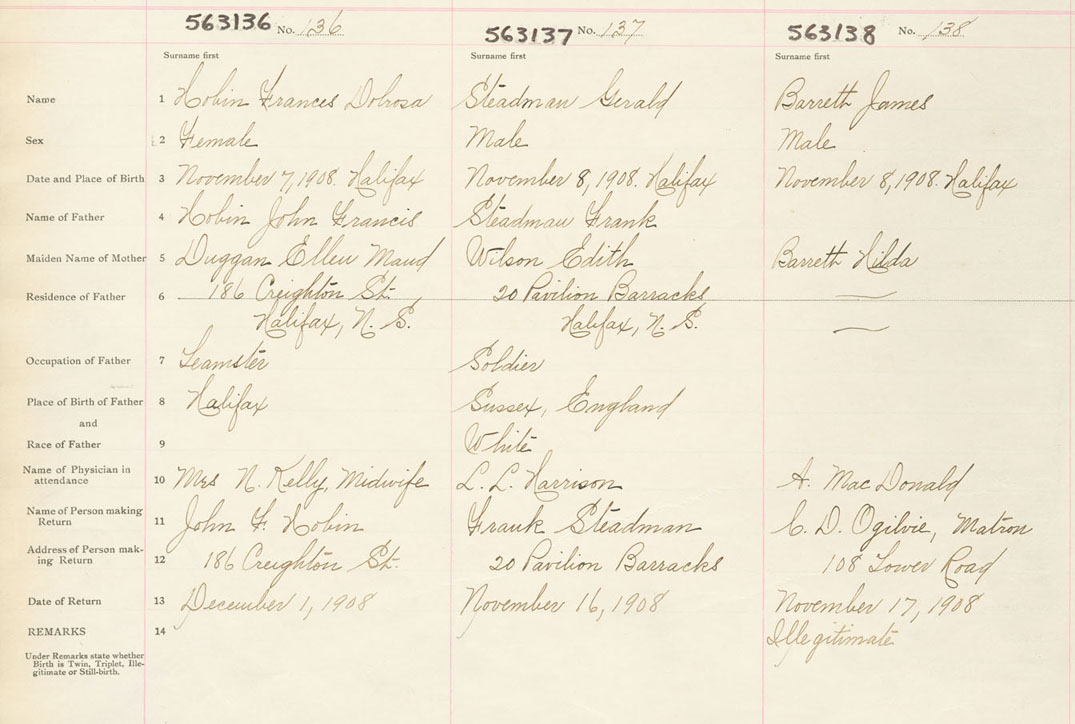 563136 No. 136 563137 No. 137 563138 No. 138
Surname first Surname first Surname first
Name 1 Hobin Frances Dolrosa Steadman Gerald Barreth James
Sex 2 Female Male Male
Date and Place of Birth 3 November 7, 1908. Halifax November 8, 1908. Halifax November 8, 1908. Halifax
Name of Father 4 Hobin John Francis Steadman Frank
Maiden Name of Mother 5 Duggan Ellen Maud Wilson Edith Barreth Hilda
Residence of Father 6 186 Creighton St. 20 Pavilion Barracks —
Halifax, N. S. Halifax, N. S. —
Occupation of Father 7 Teamster Soldier
Place of Birth of Father 8 Halifax Sussex, England
and
Race of Father 9 White
Name of Physician in
attendance 10 Mrs N. Kelly, Midwife L. L. Harrison A. MacDonald
Name of Person making
Return 11 John F. Hobin Frank Steadman C. D. Ogilvie, Matron
Address of Person mak-
ing Return 12 186 Creighton St. 20 Pavilion Barracks 108 Tower Road
Date of Return 13 December 1, 1908 November 16, 1908 November 17, 1908
REMARKS 14 Illegitimate
Under Remarks state whether
Birth is Twin, Triplet, Ille-
gitimate or Still-birth.